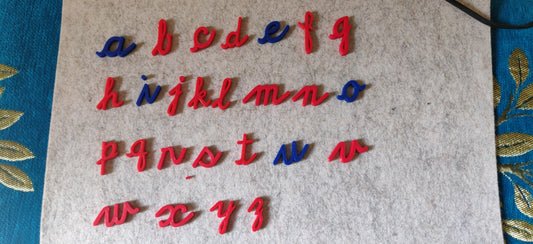 a b c d e f g
h i j k l m n o
p q r s t u v
w x y z